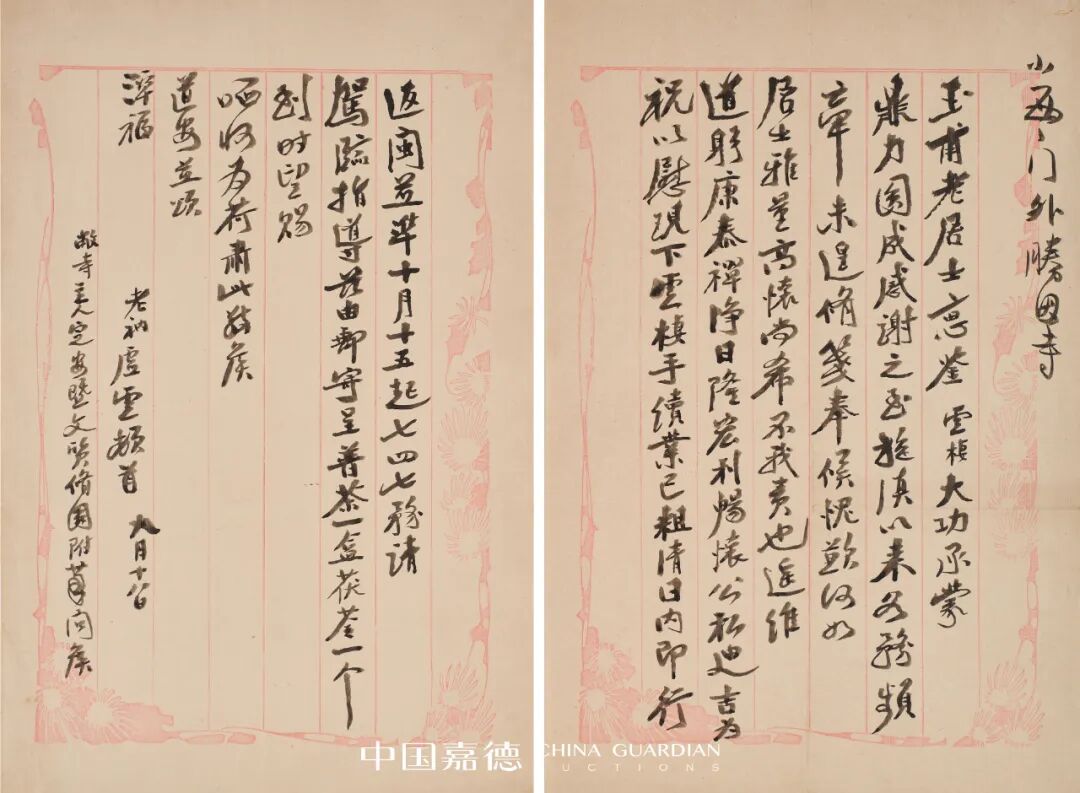 小西门外勝因寺
玉甫老居士惠鉴 雲棲大功承蒙
鼎力圆成感謝之至旋滇以来各務頻
牽未遑脩箋奉候愧歉何如
居士雅量高懷尚希不我责也遥维
道躬康泰禪净日隆宏利暢懷公私迪吉为
祝以慰現下雲棲手續業已粗清日内即行
返閩並準十月十五起七四七務請
駕臨指導兹由郵寄呈普茶一盒茯苓一个
到时望賜
哂收为荷肅此敬侯
道安並颂
潭福
老衲虚雲頓首 九月十八日
敝寺主人定安暨文贤脩圆附筆问侯
中国嘉德 CHINA GUARDIAN
AUCTIONS